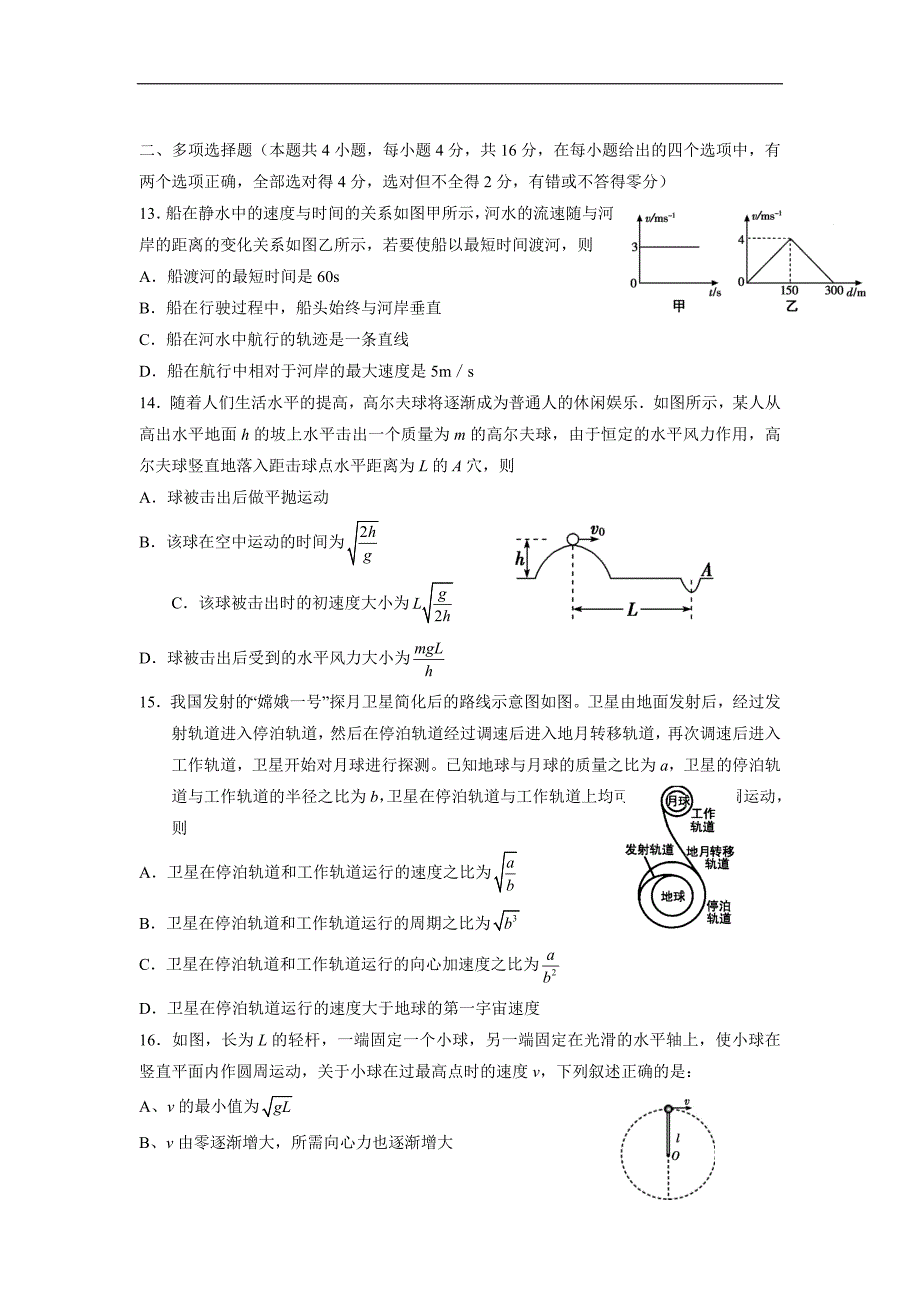 二、多项选择题（本题共 4 小题，每小题 4 分，共 16 分，在每小题给出的四个选项中，有
两个选项正确，全部选对得 4 分，选对但不全得 2 分，有错或不答得零分）
13．船在静水中的速度与时间的关系如图甲所示，河水的流速随与河
岸的距离的变化关系如图乙所示，若要使船以最短时间渡河，则
v/ms⁻¹
3
0
t/s
甲
v/ms⁻¹
4
0
150
300 d/m
乙
A．船渡河的最短时间是 60s
B．船在行驶过程中，船头始终与河岸垂直
C．船在河水中航行的轨迹是一条直线
D．船在航行中相对于河岸的最大速度是 5m／s
14．随着人们生活水平的提高，高尔夫球将逐渐成为普通人的休闲娱乐．如图所示，某人从
高出水平地面 h 的坡上水平击出一个质量为 m 的高尔夫球，由于恒定的水平风力作用，高
尔夫球竖直地落入距击球点水平距离为 L 的 A 穴，则
A．球被击出后做平抛运动
B．该球在空中运动的时间为√(2h/g)
C．该球被击出时的初速度大小为 L√(g/2h)
D．球被击出后受到的水平风力大小为 mgL/h
v₀
h
A
L
15．我国发射的“嫦娥一号”探月卫星简化后的路线示意图如图。卫星由地面发射后，经过发
射轨道进入停泊轨道，然后在停泊轨道经过调速后进入地月转移轨道，再次调速后进入
工作轨道，卫星开始对月球进行探测。已知地球与月球的质量之比为 a，卫星的停泊轨
道与工作轨道的半径之比为 b，卫星在停泊轨道与工作轨道上均可 周运动，
则
月球
工作
轨道
发射轨道
地月转移
轨道
地球
停泊
轨道
A．卫星在停泊轨道和工作轨道运行的速度之比为√(a/b)
B．卫星在停泊轨道和工作轨道运行的周期之比为√b³
C．卫星在停泊轨道和工作轨道运行的向心加速度之比为 a/b²
D．卫星在停泊轨道运行的速度大于地球的第一宇宙速度
16．如图，长为 L 的轻杆，一端固定一个小球，另一端固定在光滑的水平轴上，使小球在
竖直平面内作圆周运动，关于小球在过最高点时的速度 v，下列叙述正确的是：
A、v 的最小值为√gL
B、v 由零逐渐增大，所需向心力也逐渐增大
v
l
O